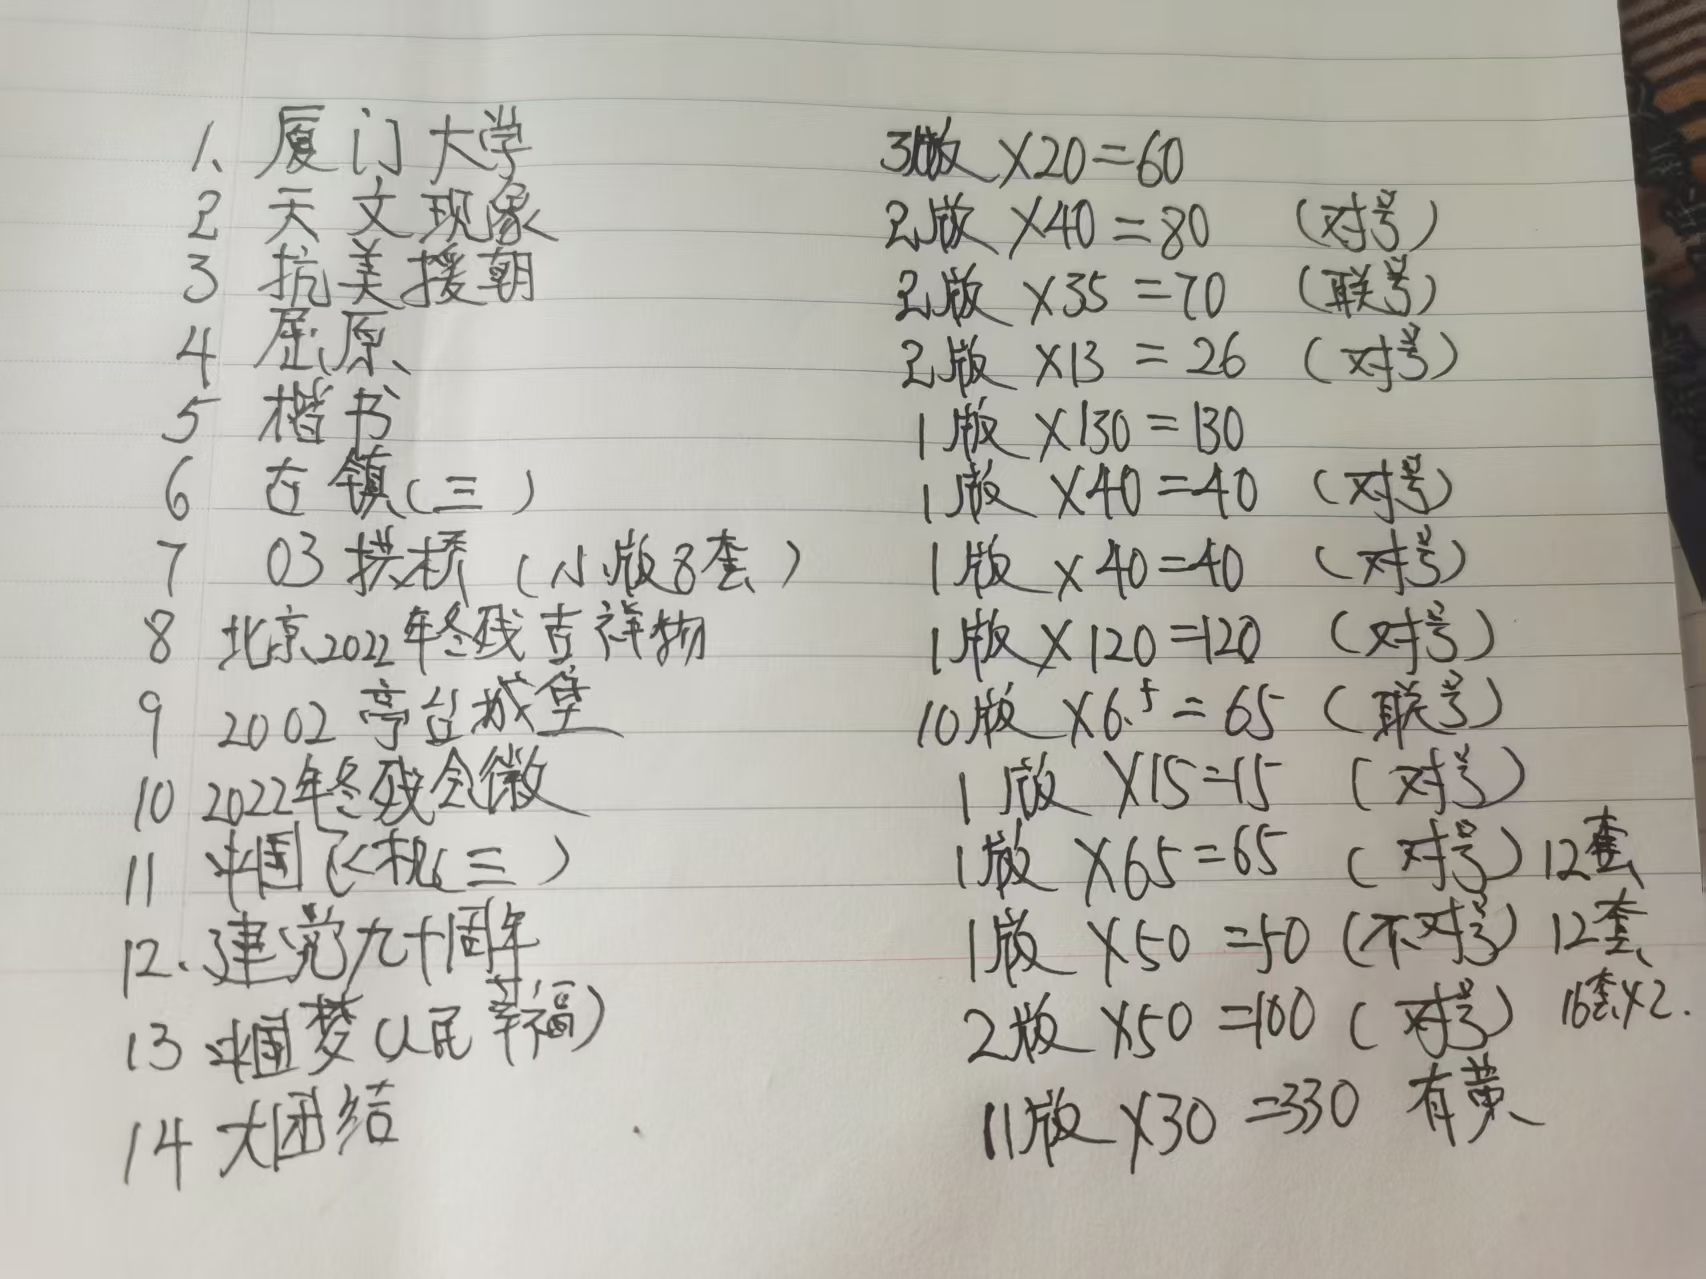 1、厦门大学 3版 ×20=60
2 天文现象 2版 ×40=80 (对号)
3 抗美援朝 2版 ×35=70 (联号)
4 屈原、 2版 ×13=26 (对号)
5 楷书 1版 ×130=130
6 古镇(三) 1版 ×40=40 (对号)
7 03拱桥(小版8套) 1版 ×40=40 (对号)
8 北京2022年冬残吉祥物 1版 ×120=120 (对号)
9 2002亭台城堡 10版 ×6.5=65 (联号)
10 2022年冬残会徽 1版 ×15=15 (对号)
11 中国飞机(三) 1版 ×65=65 (对号) 12套
12.建党九十周年 1版 ×50=50 (不对号) 12套
13 中国梦(人民幸福) 2版 ×50=100 (对号) 16套×2.
14 大团结 11版 ×30=330 有黄